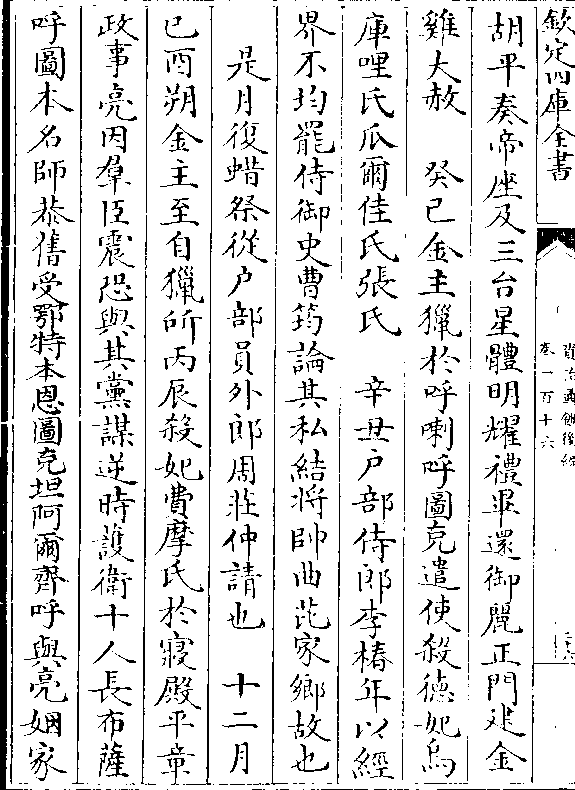 欽定四庫全書
資治通鑑後編
卷一百十六
胡平奏帝座及三台星體明耀禮畢還御麗正門建金
雞大赦　癸巳金主獵於呼喇呼圖克遣使殺德妃烏
庫哩氏瓜爾佳氏張氏　辛丑户部侍郎李椿年以經
界不均罷侍御史曹筠論其私結將帥曲芘家鄉故也
是月復蜡祭從户部員外郎周莊仲請也　十二月
已酉朔金主至自獵所丙辰殺妃費摩氏於寢殿平章
政事亮因羣臣震恐與其黨謀逆時護衛十人長布薩
呼圖本名師恭舊受鄂特本恩圖克坦阿爾齊呼與亮姻家